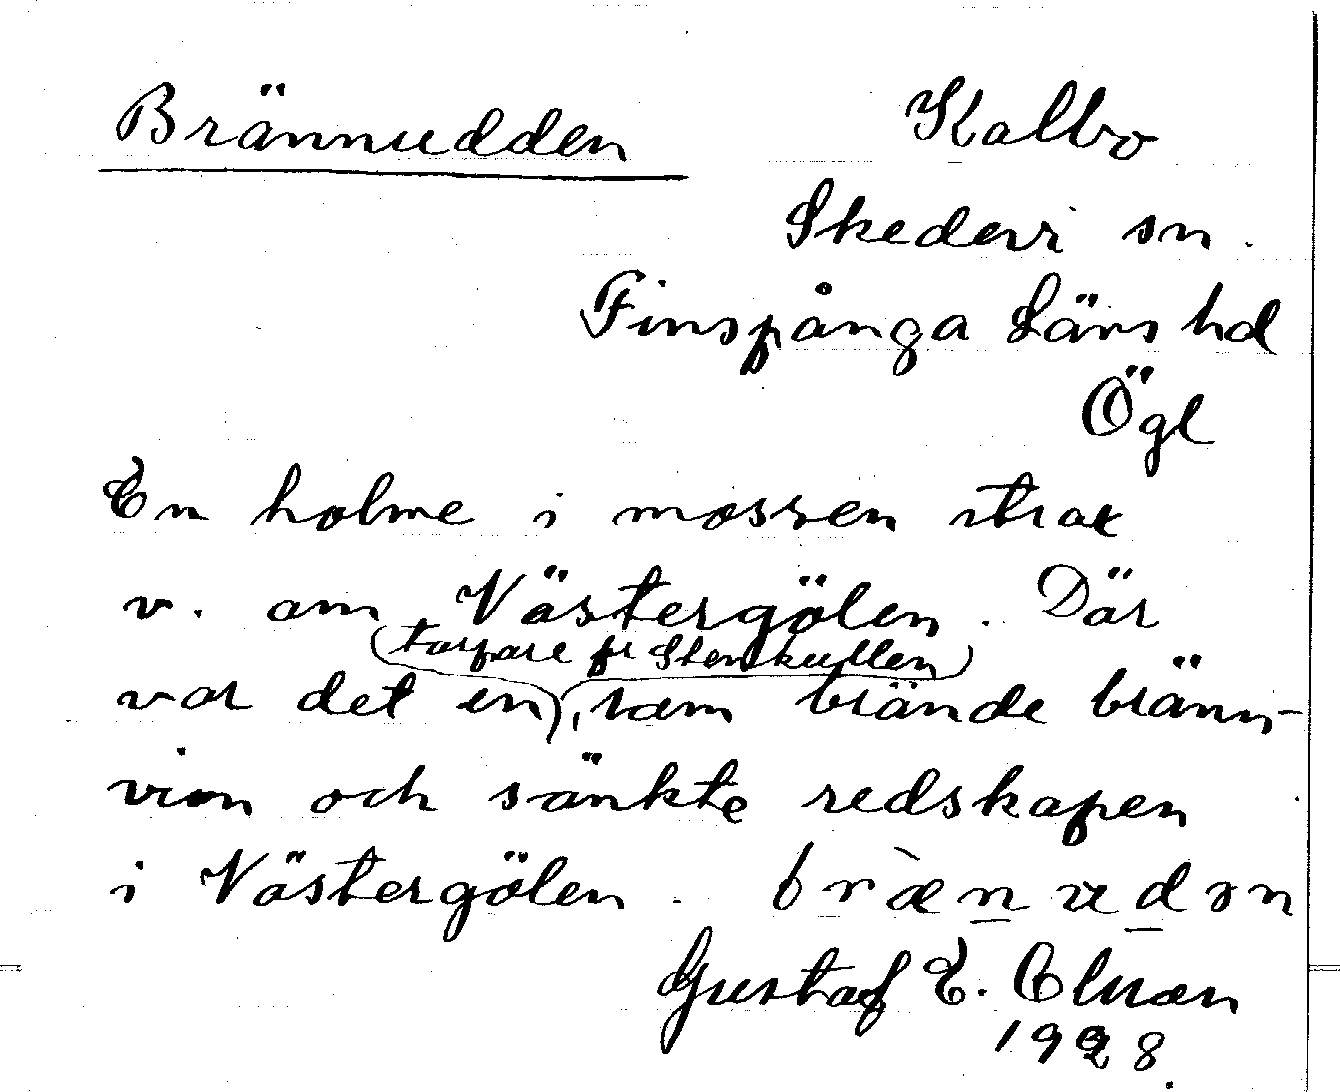 Brännudden Kalbo
Skedevi sn.
Finspånga Läns hd
Ögl
En holme i mossen strax
v. om Västergölen. Där
(torpare fr Stenkullen)
var det en, som brände bränn-
vion och sänkte redskapen
i Västergölen. brænudən
Gustaf E.
1928